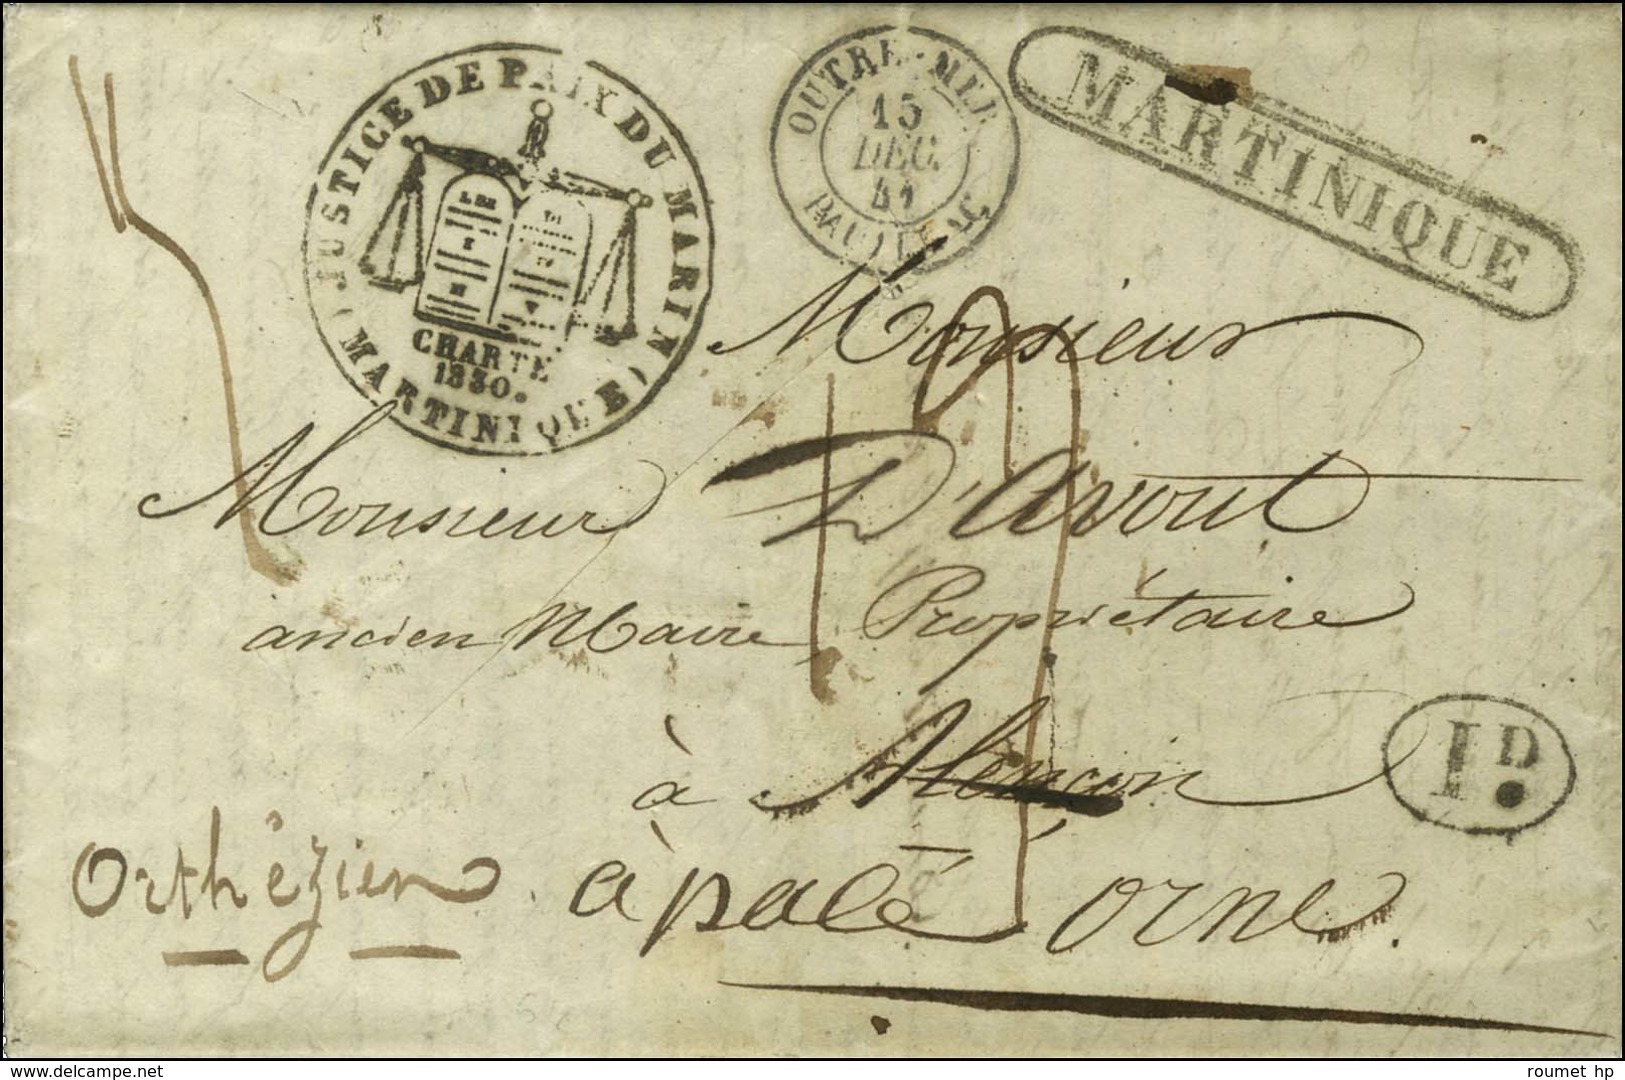 JUSTICE DE PAIX DU MARIN
(MARTINIQUE)
CHARTE
1830.
OUTRE-MER
15
DEC.
41
PAUILLAC
MARTINIQUE
Monsieur
Monsieur D'avout
ancien Maire, Propriétaire
à Alençon
1D.
Orthézien
à palé Orne
www.delcampe.net
roumet hp